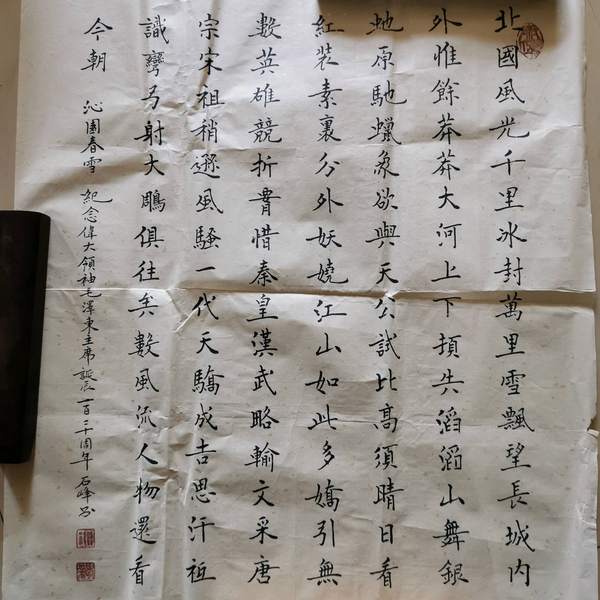 北國風光千里冰封萬里雪飄望長城内
外惟餘莽莽大河上下頓失滔滔山舞銀
虵原馳蠟象欲與天公試比高須晴日看
紅装素裏分外妖嬈江山如此多嬌引無
數英雄競折腰惜秦皇漢武略輸文采唐
宗宋祖稍遜風騷一代天驕成吉思汗祗
識彎弓射大鵰俱往矣數風流人物還看
今朝 沁園春雪 紀念偉大領袖毛澤東主席誕辰一百三十周年 石峰书